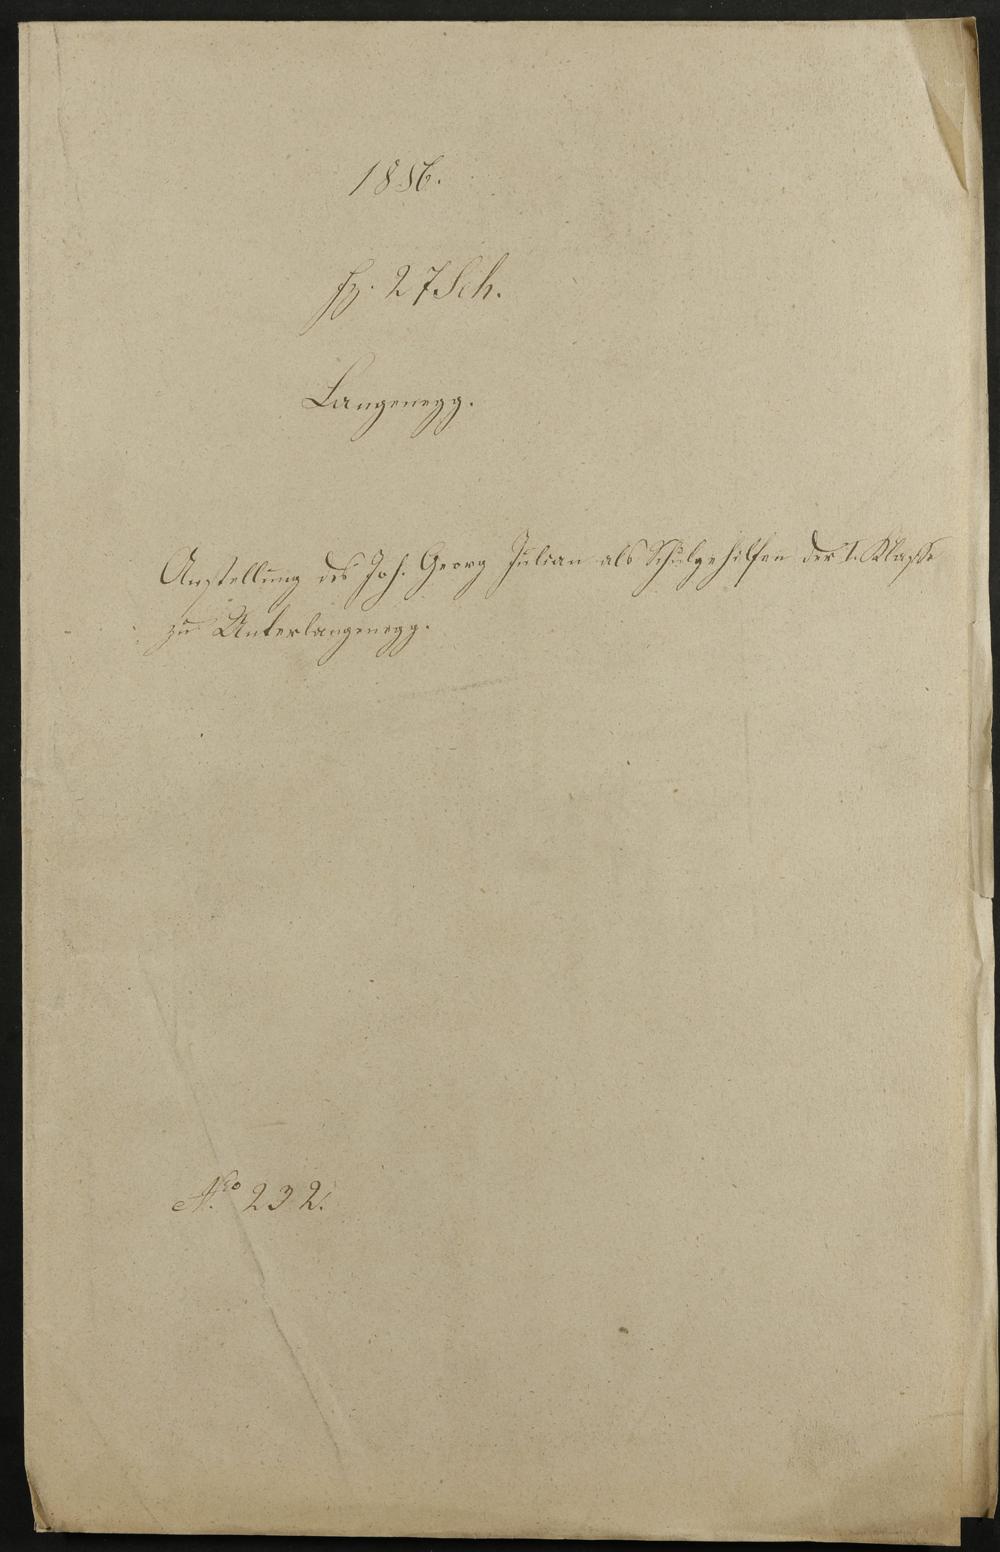 1856.
Fz. 27 Sch.
Langenegg.
Anstellung des Joh. Georg Julian als Schulgehilfen der I. Klasse
zu Unterlangenegg.
Nro 232.